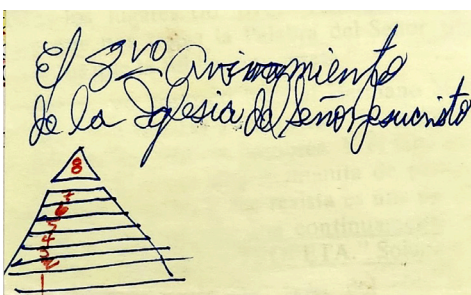 El 8vo Avivamiento
de la Iglesia del Señor Jesucristo
8
7
6
5
4
3
2
1